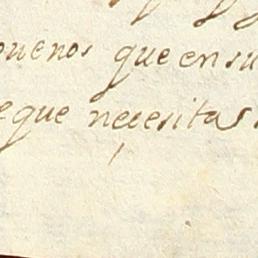 ouenos que en su
eque necesitas